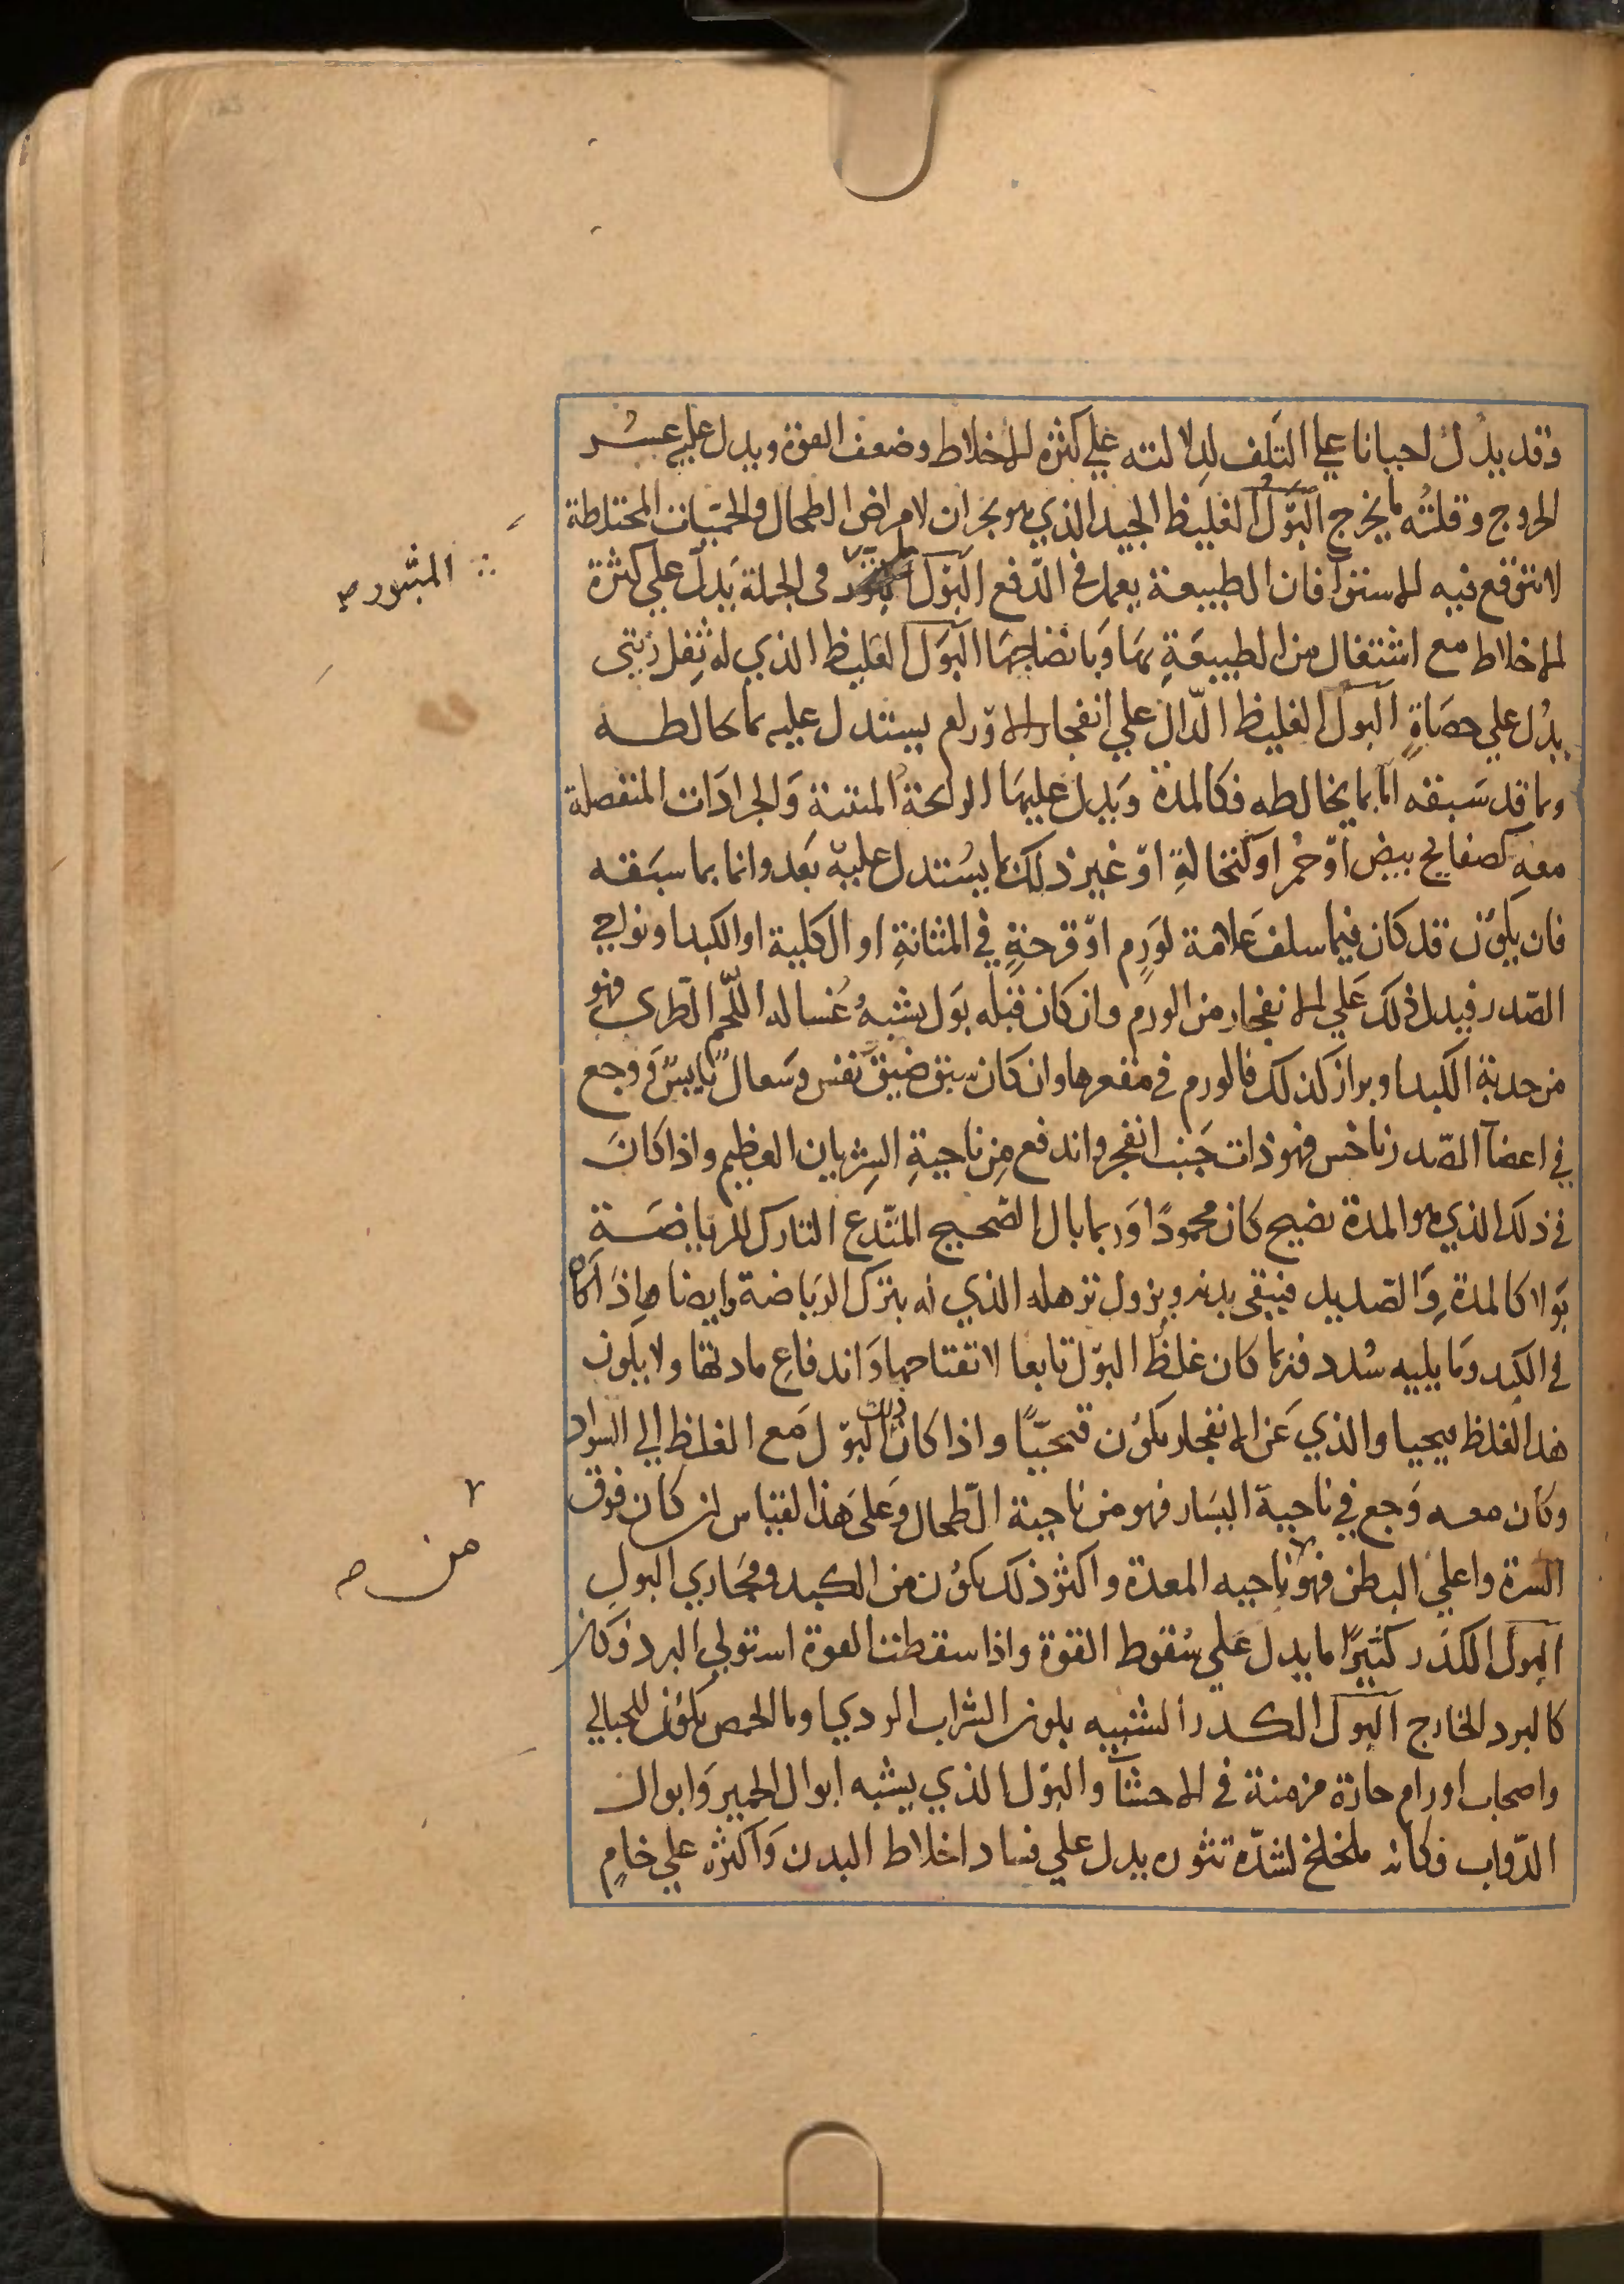 وقد يدل احيانا علي التلف لدلالته علي كثرة الاخلاط وضعف القوة ويدل عليه عسر
الخروج وقلته ما يخرج البول الغليظ الجيد الذي هو بحران لامراض الطحال والحميات المختلطة
لا تتوقع فيه الاستوآ فان الطبيعة يعمل في الدفع البول في الجملة يدل علي كثرة
الاخلاط مع اشتغال من الطبيعة بها وبانضاجها البول الغليظ الذي له ثفل زيتي
يدل علي حصاة البول الغليظ الدال علي انفجار الاورام يستدل عليه بما يخالطه
وبما قد سبقه اما بما يخالطه فكالمدة ويدل عليها الرائحة المنتنة والجرادات المنفصلة
معه كصفايح بيض او حمر او كنخالة او غير ذلك مما يستدل عليه بعد واما بما سبقه
فان يكون قد كان فيما سلف علامة لورم او قرحة في المثانة او الكلية او الكبد او نواحي
الصدر فيدل ذلك علي الانفجار من الورم وان كان قبله بول يشبه غساله اللحم الطري فهو
من حدبة الكبد او براز كذلك فالورم في مقعرها وان كان سبق ضيق نفس وسعال يابس ووجع
في اعضآ الصدر ناخس فهو ذات جنب انفجر واندفع من ناحية الشريان العظيم واذا كان
في ذلك الذي هو المدة نضيج كان محمودا وربما بال الصحيح المتدع التارك للرياضة
بولا كالمدة والصديد فينقي بدنه ويزول ترهله الذي له بترك الرياضة وايضا فاذا كان
في الكبد وما يليه سدد فربما كان غلظ البول تابعا لانفتاحها واندفاع مادتها ولا يكون
هذا الغلظ قيحيا والذي عن الانفجار يكون قيحيا واذا كان البول مع الغلظ الي السواد
وكان معه وجع في ناحية اليسار فهو من ناحية الطحال وعلي هذا القياس ان كان فوق
السرة واعلي البطن فهو ناحيه المعدة واكثر ذلك يكون من الكبد ومجاري البول
البول الكدر كثيرا ما يدل علي سقوط القوة واذا سقطت القوة استولي البرد وكان
كالبرد الخارج البول الكدر الشبيه بلون الشراب الردي او ما الحمص يكون للحبالي
واصحاب اورام حارة مزمنة في الاحشآ والبول الذي يشبه ابوال الحمير وابوال
الدواب فكانه ملخلخ لشدة تثوره يدل علي فساد اخلاط البدن واكثره علي خام
المبثور صح
من صح